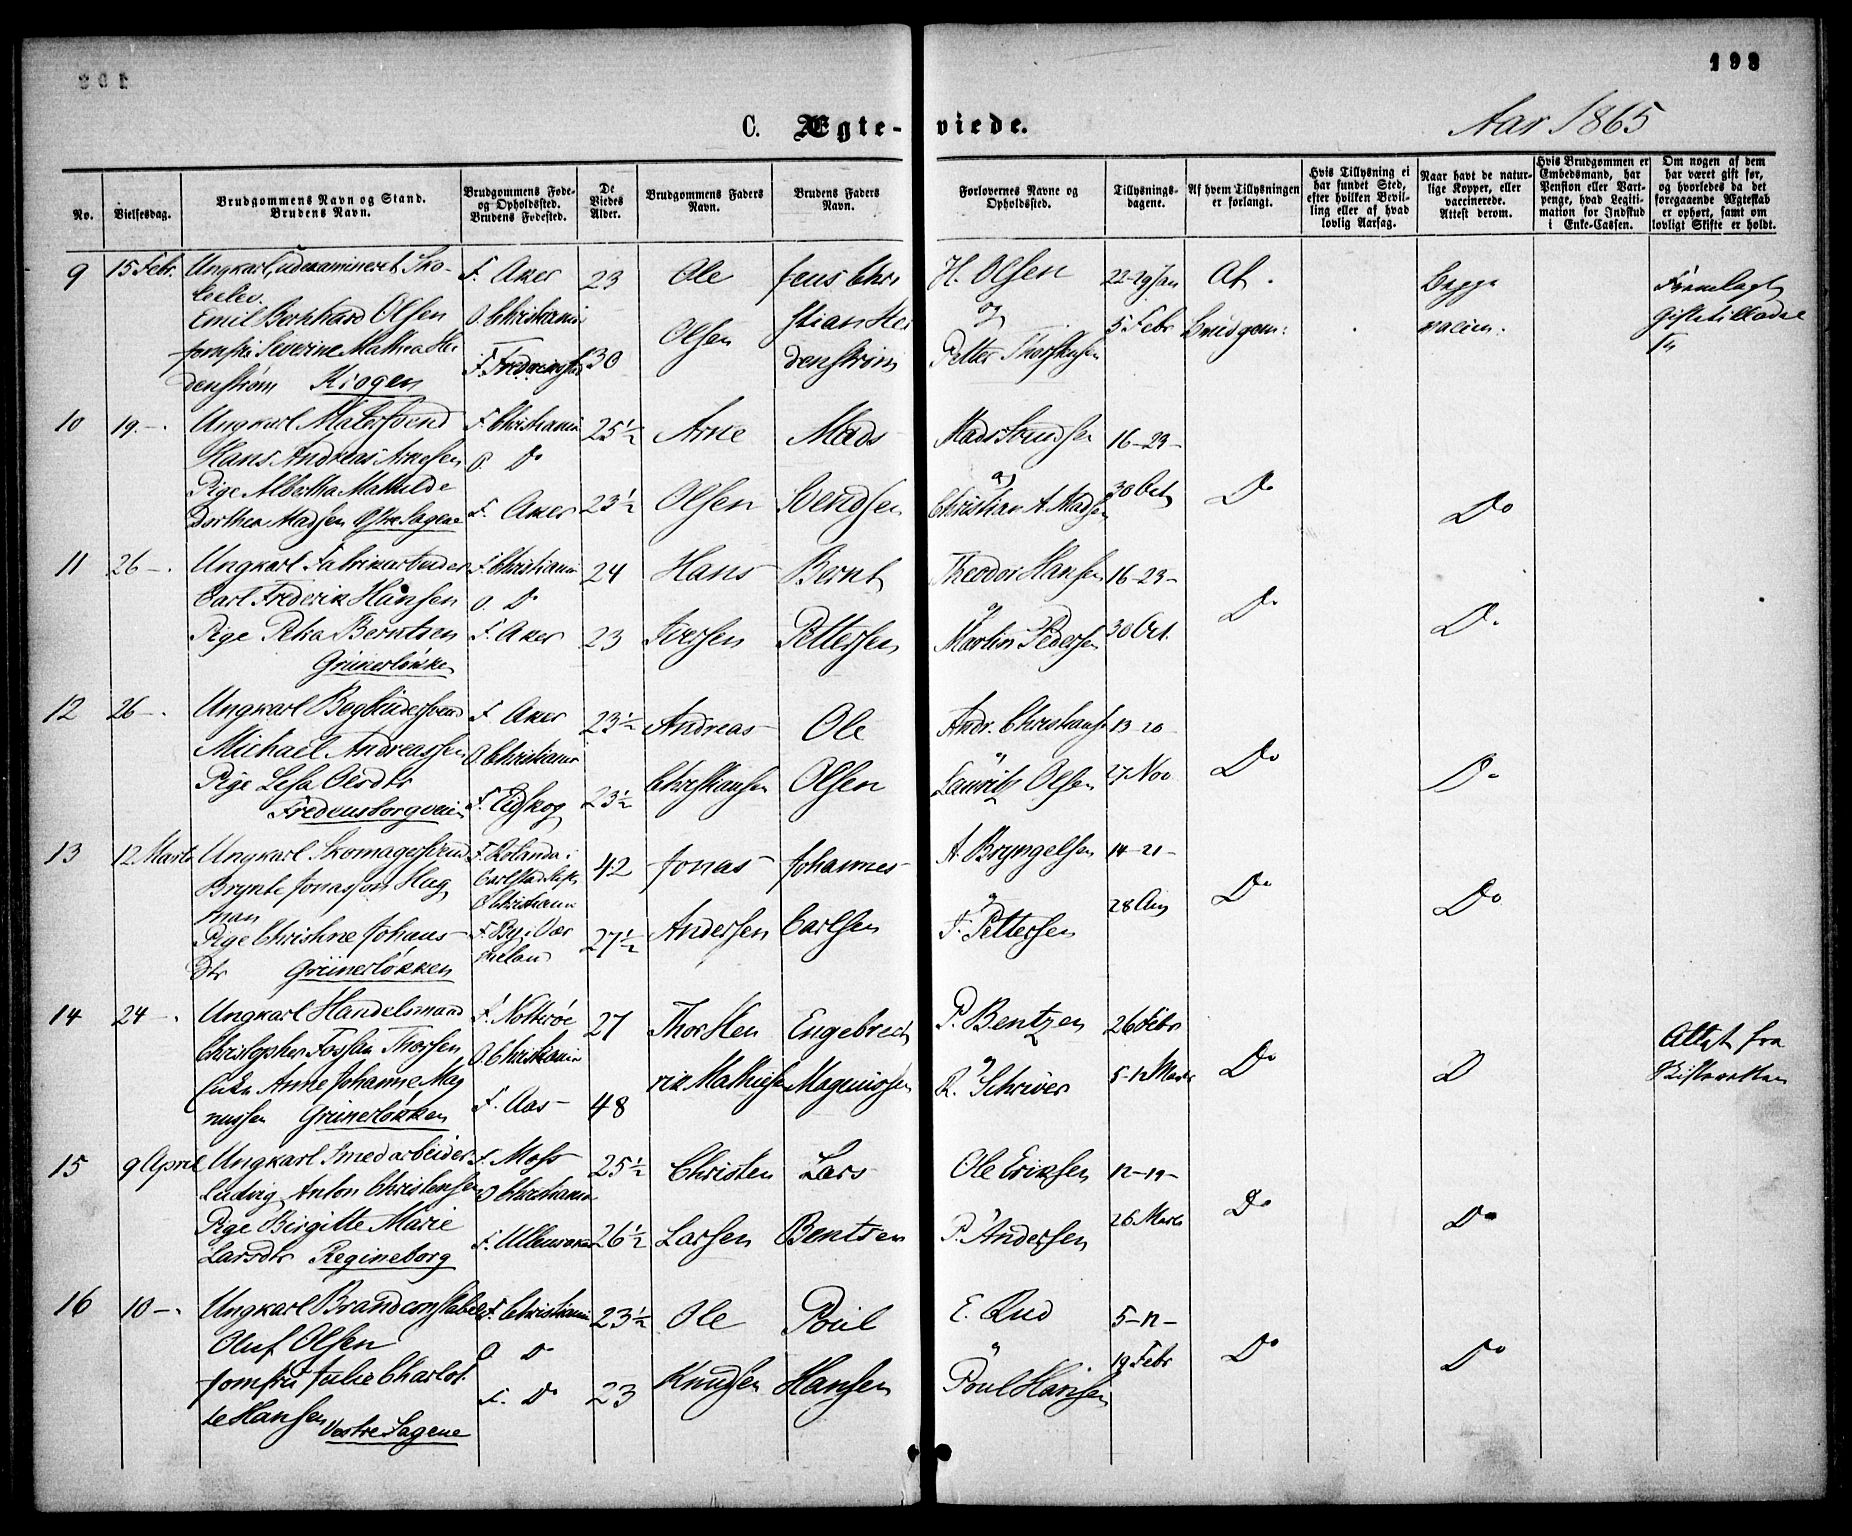 193
C. Ægte-viede.
Aar 1865
No.
Vielsesdag.
Brudgommens Navn og Stand.
Brudens Navn.
Brudgommens Føde-
og Opholdssted.
Brudens Fødested.
De
Viedes
Alder.
Brudgommens Faders
Navn.
Brudens Faders
Navn.
Forlovernes Navne og
Opholdssted.
Tillysnings-
dagene.
Af hvem Tillysningen
er forlangt.
Hvis Tillysning ei
har fundet Sted,
efter hvilken Bevil-
ling eller af hvad
lovlig Aarsag.
Naar havt de natur-
lige Kopper, eller
vaccinerede.
Attest derom.
Hvis Brudgommen er
Embedsmand, har
Pension eller Vart-
penge, hvad Legiti-
mation for Indskud
i Enke-Cassen.
Om nogen af dem
har været gift før,
og hvorledes da det
foregaaende Ægteskab
er ophørt, samt om
lovligt Skifte er holdt.
9 15 Febr. Ungkarl, udexamineret Sko-
leelev.
Emil Bernhard Olsen
Jomfru Severine Mathea He
denstrøm Krogen
F. Aker
O. Christiania
F. Fredrikstad
23
30
Ole
Olsen
Jens Chri
stian He
denstrøm
H. Olsen
og
Petter Thorsthusen
22-29 Jan
5 Febr
Af
Brudgom:
Begge
vaccin.
Fremlagt
Giftetilladelse
10 19 -. Ungkarl Malersvend
Hans Andreas Arnesen
Pige Albertha Mathilde
Dorthea Madsen Østre Sagene
F. Christiania
O. Do
F. Aker
25½
23½
Arne
Olsen
Mads
Svendsen
Mads Svendsen
og
Christian A. Madsen
16-23-
30 Oct
Do
Do
11 26 -. Ungkarl Fabrikarbeider
Carl Frederik Hansen
Pige Petra Berntsen
Grünerløkke
F. Christiania
O. Do
F. Aker
24
23
Hans
Iversen
Bernt
Pettersen
Theodor Hansen
og
Martin Pedersen
16-23-
30 Oct.
Do
Do
12 26 -. Ungkarl Bogbindersvend
Michael Andreassen
Pige Lesa Olsdtr
Fredensborgveien
F. Aker
O. Christiania
F. Eidskog
23½
23½
Andreas
Christiansen
Ole
Olsen
Andr. Christiansen
Lauritz Olsen
13-20-
27 Nov
Do
Do
13 12 Marts Ungkarl Skomagersvend
Brynte Jonasson Hag
man
Pige Christine Johans-
dtr Grünerløkken
F. Bolanda i
Carlstad Stift
O Christiania
F. By i Vær
meland
42
27½
Jonas
Andersen
Johannes
Carlsen
A. Bryngelsen
og
F. Pettersen
14-21-
28 Aug
Do
Do
14 24 -. Ungkarl Handelsmand
Christopher Fossan Thorsen
Enke Anne Johanne Mag
nussen Grünerløkken
F. Nøtterøe
O Christiania
F. Aas
27
48
Thor Hen
rik Mathisen
Engebrecht
Magnussen
P. Bentzen
R. Schriver
26 Febr
5-12 Marts
Do
D
Attest fra
Skifteretten
15 9 April Ungkarl Smedarbeider
Ludvig Anton Christensen
Pige Birgitte Marie
Larsdtr Regineborg
F. Moss
O Christiania
F. Ullensaker
25½
26½
Christen
Larsen
Lars
Bentsen
Ole Eriksen
P. Andersen
12-19-
26 Marts
Do
Do
16 10 -. Ungkarl Brandconstabel
Oluf Olsen
Jomfru Julie Charlot
te Hansen Vestre Sagene
F. Christiania
O. Do
F. Do
23½
23
Ole
Knudsen
Poul
Hansen
E. Rud
Poul Hansen
5-12-
19 Febr
Do
Do